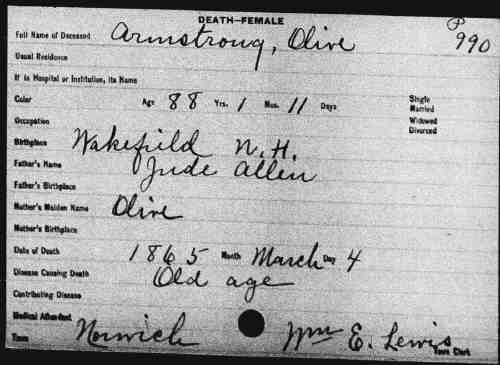 DEATH—FEMALE
P 990
Full Name of Deceased Armstrong, Olive
Usual Residence
If in Hospital or Institution, its Name
Color Age 88 Yrs. 1 Mos. 11 Days Single
Married
Occupation Widowed
Divorced
Birthplace Wakefield N.H.
Father's Name Jude Allen
Father's Birthplace
Mother's Maiden Name Olive
Mother's Birthplace
Date of Death 1865 Month March Day 4
Disease Causing Death Old age
Contributing Disease
Medical Attendant
Town Norwich Wm E. Lewis Town Clerk